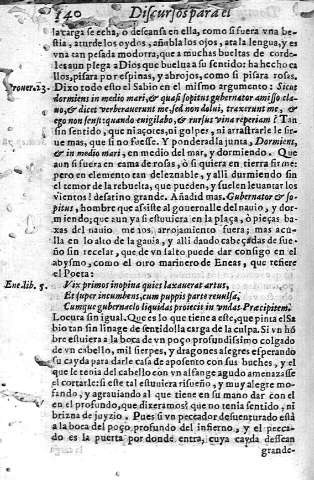 140 Discursos para el
la carga se echa, o descansa en ella, como si fuera vna be-
stia, aturde los oydos, añubla los ojos, ata la lengua, y es
vna tan pesada modorra, que a muchas bueltas de corde-
les aun no llega a Dios que buelua a su sentido: ha hecho ca-
llos, pisara por espinas, y abrojos, como si pisara rosas.
Prouer. 23. Dixo todo esto el Sabio en el mismo argumento: Sicut
dormiens in medio mari, & quasi sopitus gubernator amisso cla-
uo, & dicet verberauerunt me, sed non dolui, traxerunt me, &
ego non sensi: quando euigilabo, & rursus vina reperiam? Tan
sin sentido, que ni açotes, ni golpes, ni arrastrarle le sirue
mas, que si no fuesse. Y ponderad la junta, Dormiens,
& in medio mari, en medio del mar, y dormiendo. Que
aun si fuera en cama de rosas, ò si quiera en tierra firme;
pero en elemento tan deleznable, y alli durmiendo sin
el temor de la rebuelta, que pueden, y suelen leuantar los
vientos! desatino grande. Añadid mas. Gubernator & so-
pitus, hombre que assiste al gouernalle del nauio, y dor-
miendo; que aun ya si estuuiera en la plaça, ò pieças ba-
xas del nauio menos arrojamiento fuera; mas acu-
lla en lo alto de la gauia, y alli dando cabeçadas de sue-
ño sin recelar, que de vn salto puede dar consigo en el
abysmo, como el otro marinero de Eneas, que refiere
el Poeta:
Ene. lib. 5. Vix primos inopina quies laxauerat artus,
Et super incumbens, cum puppis parte reuulsa,
Cumque gubernaclo liquidas proiecit in vndas Præcipitem.
Locura sin igual. Que lo que tiene a este, que pinta el Sa-
bio tan sin linage de sentido la carga de la culpa. Si vn hõ
bre estuuiera a la boca de vn poço profundissimo colgado
de vn cabello, mil sierpes, y dragones alegres esperando
su cayda para darle casa de aposento con sus buches, y el
que le tenia del cabello con vn alfange agudo amenazasse
el cortarle: si este tal estuuiera risueño, y muy alegre mo-
fando, y agrauiando al que tiene en su mano dar con el
en el profundo, que dixeramos? que no tenia sentido, ni
brizna de juyzio. Pues si vn peccador desuenturado está
a la boca del poço profundo del infierno, y el pecca-
do es la puerta por donde entra, cuya cayda dessean
grande-